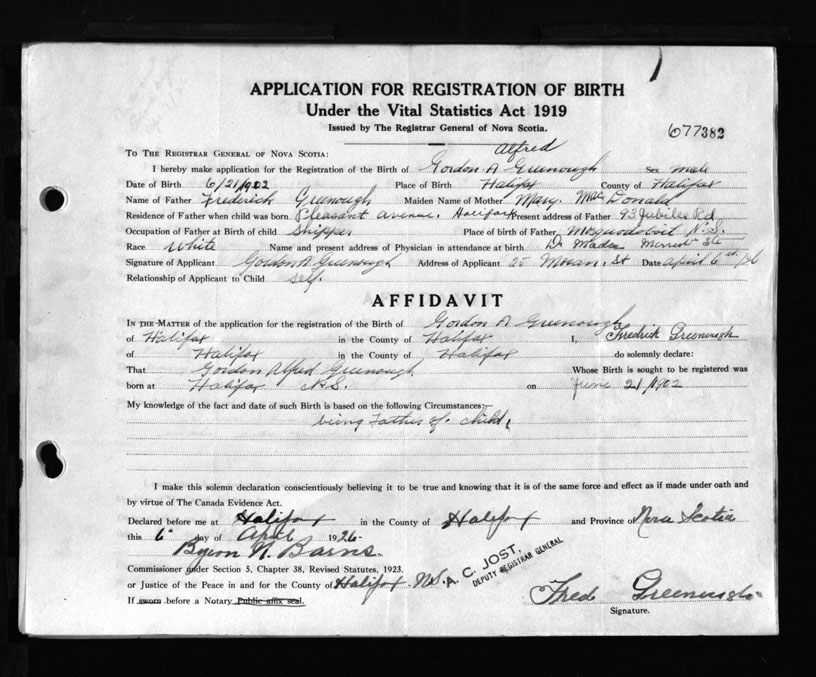 APPLICATION FOR REGISTRATION OF BIRTH
Under the Vital Statistics Act 1919
Issued by The Registrar General of Nova Scotia.
677382
Alfred
TO THE REGISTRAR GENERAL OF NOVA SCOTIA:
I hereby make application for the Registration of the Birth of Gordon A Greenough Sex male
Date of Birth 6/21/1902 Place of Birth Halifax County of Halifax
Name of Father Frederick Greenough Maiden Name of Mother Mary. MacDonald
Residence of Father when child was born Pleasant Avenue, Halifax Present address of Father 93 Jubilee Rd
Occupation of Father at Birth of child Shipper Place of birth of Father Musquodoboit N.S.
Race White Name and present address of Physician in attendance at birth Dr Mader
Signature of Applicant Gordon A Greenough Address of Applicant 25 Moran. St Date April 6th/26
Relationship of Applicant to Child self.
AFFIDAVIT
IN THE MATTER of the application for the registration of the Birth of Gordon A Greenough
of Halifax in the County of Halifax I, Fredrick Greenough
of Halifax in the County of Halifax do solemnly declare:
That Gordon Alfred Greenough Whose Birth is sought to be registered was
born at Halifax N.S. on June 21/1902
My knowledge of the fact and date of such Birth is based on the following Circumstances:—
being Father of. child.
I make this solemn declaration conscientiously believing it to be true and knowing that it is of the same force and effect as if made under oath and
by virtue of The Canada Evidence Act.
Declared before me at Halifax in the County of Halifax and Province of Nova Scotia
this 6 day of April 1926
Byron N. Barns.
Commissioner under Section 5, Chapter 38, Revised Statutes, 1923.
or Justice of the Peace in and for the County of Halifax N.S.
A. C. JOST,
DEPUTY REGISTRAR GENERAL
If sworn before a Notary Public affix seal.
Fred Greenough
Signature.